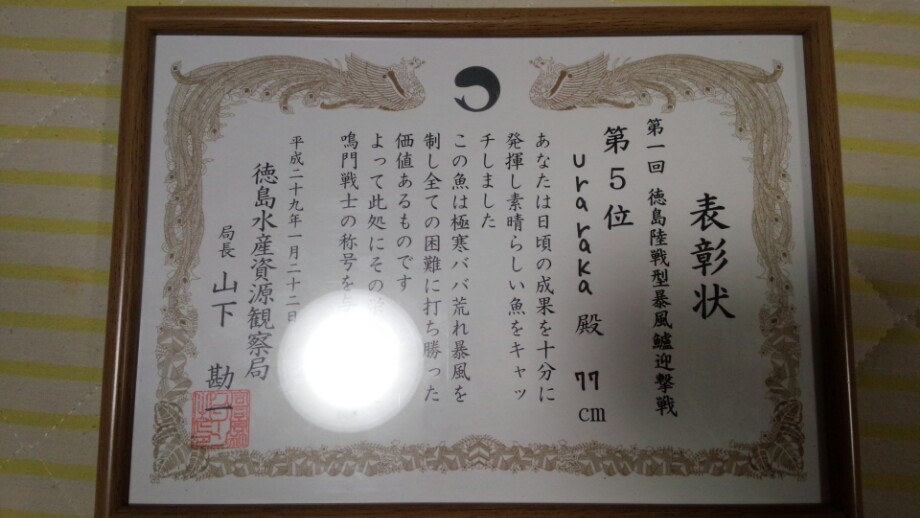 表彰状
第一回 徳島陸戦型暴風鱸迎撃戦
第5位
uraraka 殿 77cm
あなたは日頃の成果を十分に
発揮し素晴らしい魚をキャッ
チしました
この魚は極寒ババ荒れ暴風を
制し全ての困難に打ち勝った
価値あるものです
よって此処にその
鳴門戦士の称号を
平成二十九年一月二十二日
徳島水産資源観察局
局長 山下 勘一